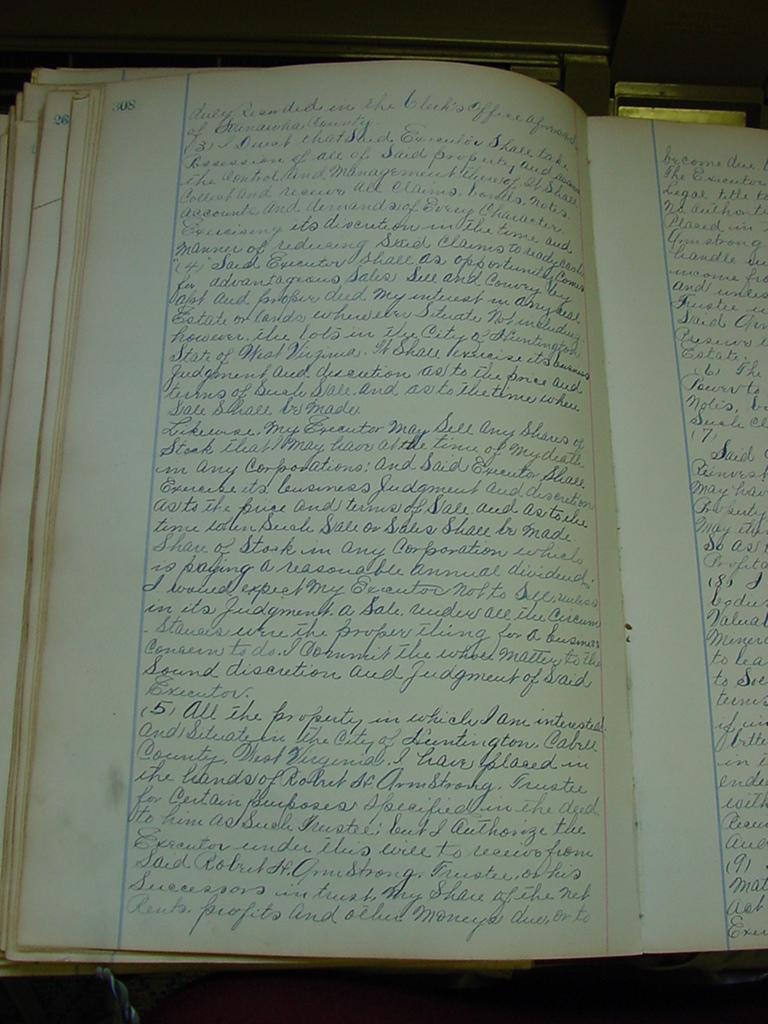 308
duly recorded in the Clerk's Office aforesaid
of Kanawha County.
(3) I Direct that Said Executor Shall take
Possession of all of Said property and assume
the Control and Management thereof. It Shall
Collect and receive all Claims, bonds, notes,
accounts and demands of Every Character,
Exercising its discretion in the time and
manner of reducing Said Claims to ready cash
"(4) Said Executor Shall as opportunity Comes
for advantageous Sales Sell and Convey by
apt and proper deed my interest in any real
Estate or lands wherever Situate Not including
however, the lots in the City of Huntington
State of West Virginia. It Shall exercise its business
Judgment and discretion as to the price and
terms of Such Sale and as to the time when
Sale Shall be made.
Likewise, my Executor May Sell any Shares of
Stock that I may have at the time of my death
in any Corporations; and Said Executor Shall
Exercise its business Judgment and discretion
as to the price and terms of Sale and as to the
time when Such Sale or Sales Shall be made.
Share of Stock in any Corporation which
is paying a reasonable annual dividend;
I would expect my Executor not to Sell, unless
in its Judgment a Sale under all the Circum
-Stances were the proper thing for a business
Concern to do. I Commit the whole matter to the
Sound discretion and Judgment of Said
Executor.
(5) All the property in which I am interested
and Situate in the City of Huntington, Cabell
County, West Virginia, I have placed in
the hands of Robert H. Armstrong, Trustee
for Certain purposes specified in the deed
to him as Such Trustee; but I Authorize the
Executor under this will to receive from
Said Robert H. Armstrong, Trustee, or his
Successors in trust, my Share of the net
Rents, profits and other moneys due, or to
26
become due
The Executor
Legal title to
No authority
Placed in
Armstrong
handle
income from
and unless
Trustee
Said
Preserve
Estate.
(6) The
Power to
Notes,
Such
(7)
Said
Reinvest
May have
Property
May
So as
(8) I
to
to
terms
if
in
with
(9)
act